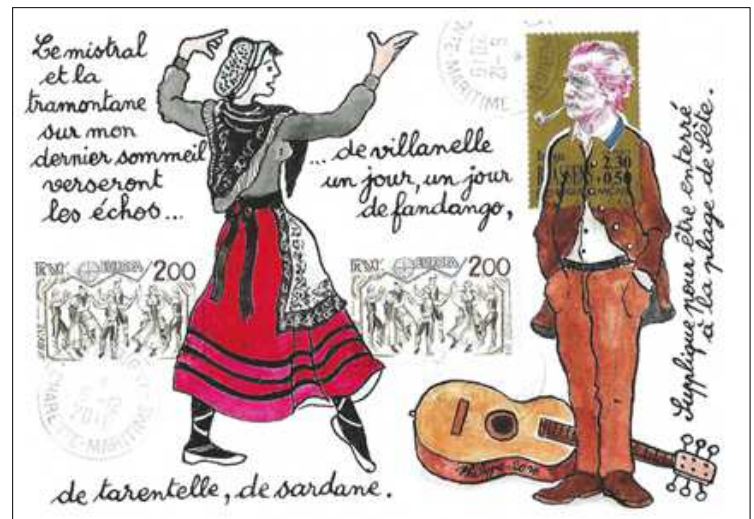 Le mistral
et la
tramontane
sur mon
dernier sommeil
verseront
les échos...
... de villanelle
un jour, un jour
de fandango,
de tarentelle, de sardane.
Supplique pour être enterré
à la plage de Sète.
EUROPA
200
EUROPA
200
2.30
+0.50
MARITIME
MARITIME